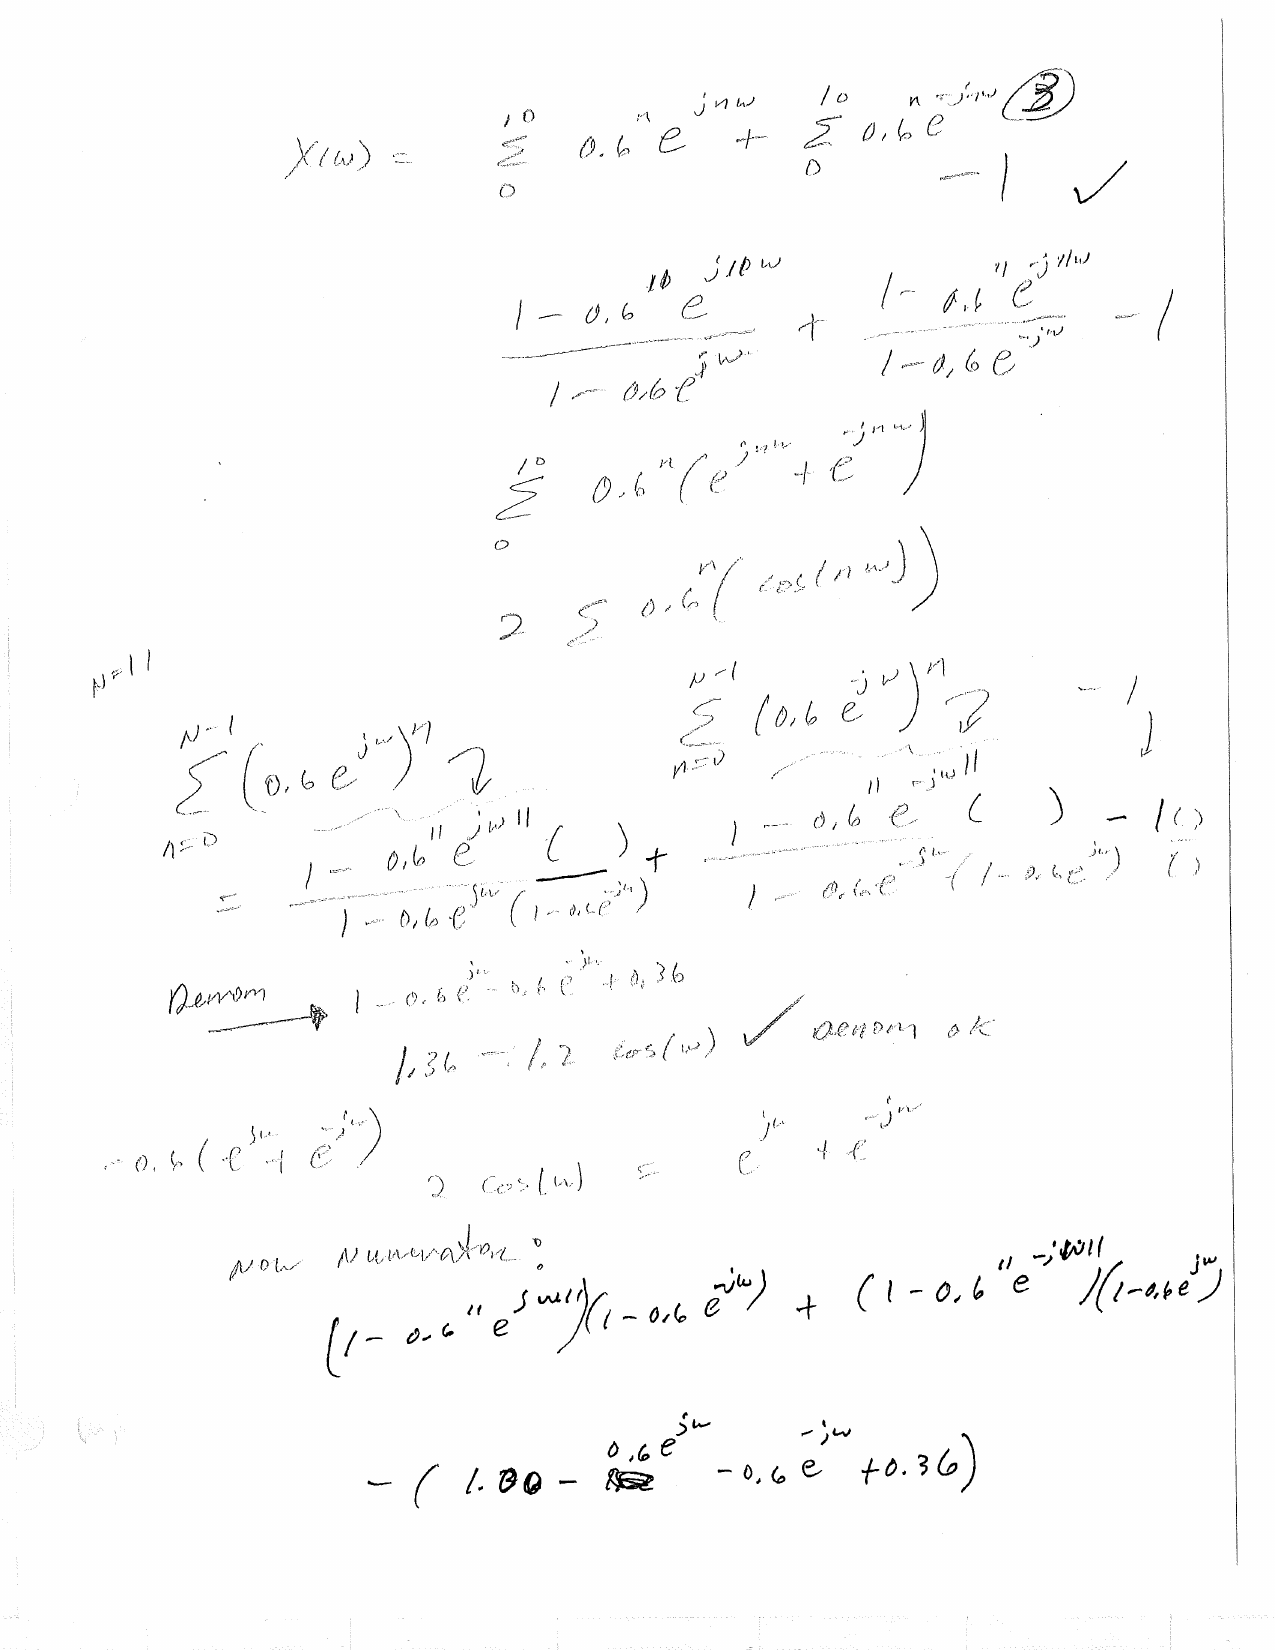 ③
X(ω) = Σ_0^10 0.6^n e^{jnω} + Σ_0^10 0.6^n e^{-jnω} - 1 ✓
(1 - 0.6^10 e^{j10ω}) / (1 - 0.6e^{jω}) + (1 - 0.6^11 e^{-j11ω}) / (1 - 0.6e^{-jω}) - 1
Σ_0^10 0.6^n (e^{jnω} + e^{-jnω})
2 Σ 0.6^n (cos(nω))
N=11
Σ_{n=0}^{N-1} (0.6e^{jω})^n Σ_{n=0}^{N-1} (0.6e^{-jω})^n - 1
= (1 - 0.6^11 e^{jω11} ( )) / (1 - 0.6e^{jω} (1 - 0.6e^{-jω})) + (1 - 0.6^11 e^{-jω11} ( )) / (1 - 0.6e^{-jω} (1 - 0.6e^{jω})) - 1 ( ) / ( )
Denom → 1 - 0.6e^{jω} - 0.6e^{-jω} + 0.36
1.36 - 1.2 cos(ω) ✓ Denom ok
-0.6(e^{jω} + e^{-jω})
2 cos(ω) = e^{jω} + e^{-jω}
Now Numerator:
(1 - 0.6^11 e^{jω11})(1 - 0.6e^{-jω}) + (1 - 0.6^11 e^{-jω11})(1 - 0.6e^{jω})
- (1.00 - 0.6e^{jω} - 0.6e^{-jω} + 0.36)